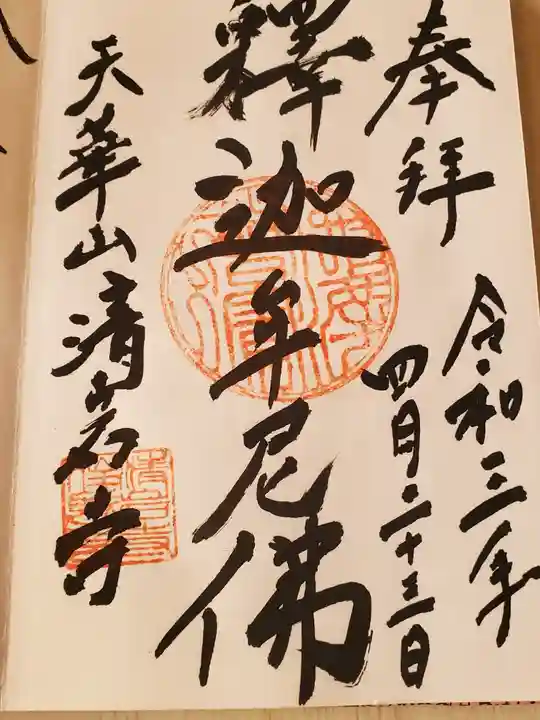 奉拝
令和三年
四月二十三日
釋迦牟尼佛
天華山清岩寺